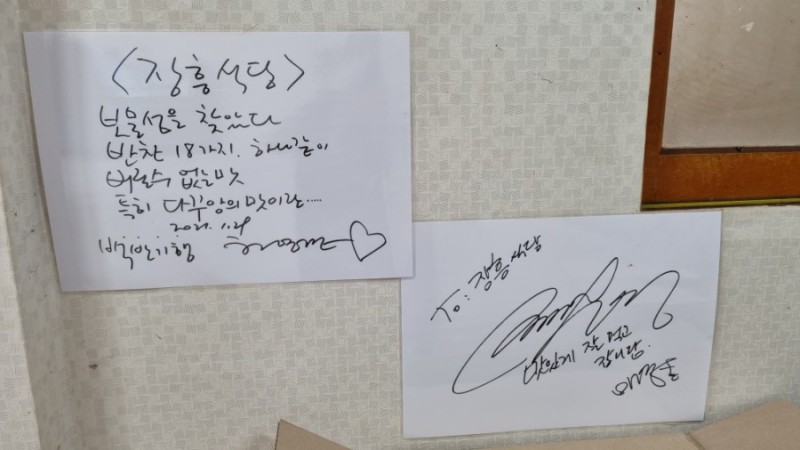 <장흥식당>
보물섬을 찾았다
반찬 18가지. 하나같이
버릴수 없는맛
특히 다꾸앙의 맛이란.....
2021. 1.29
백반기행 허영만
To: 장흥식당
맛있게 잘 먹고
갑니당.